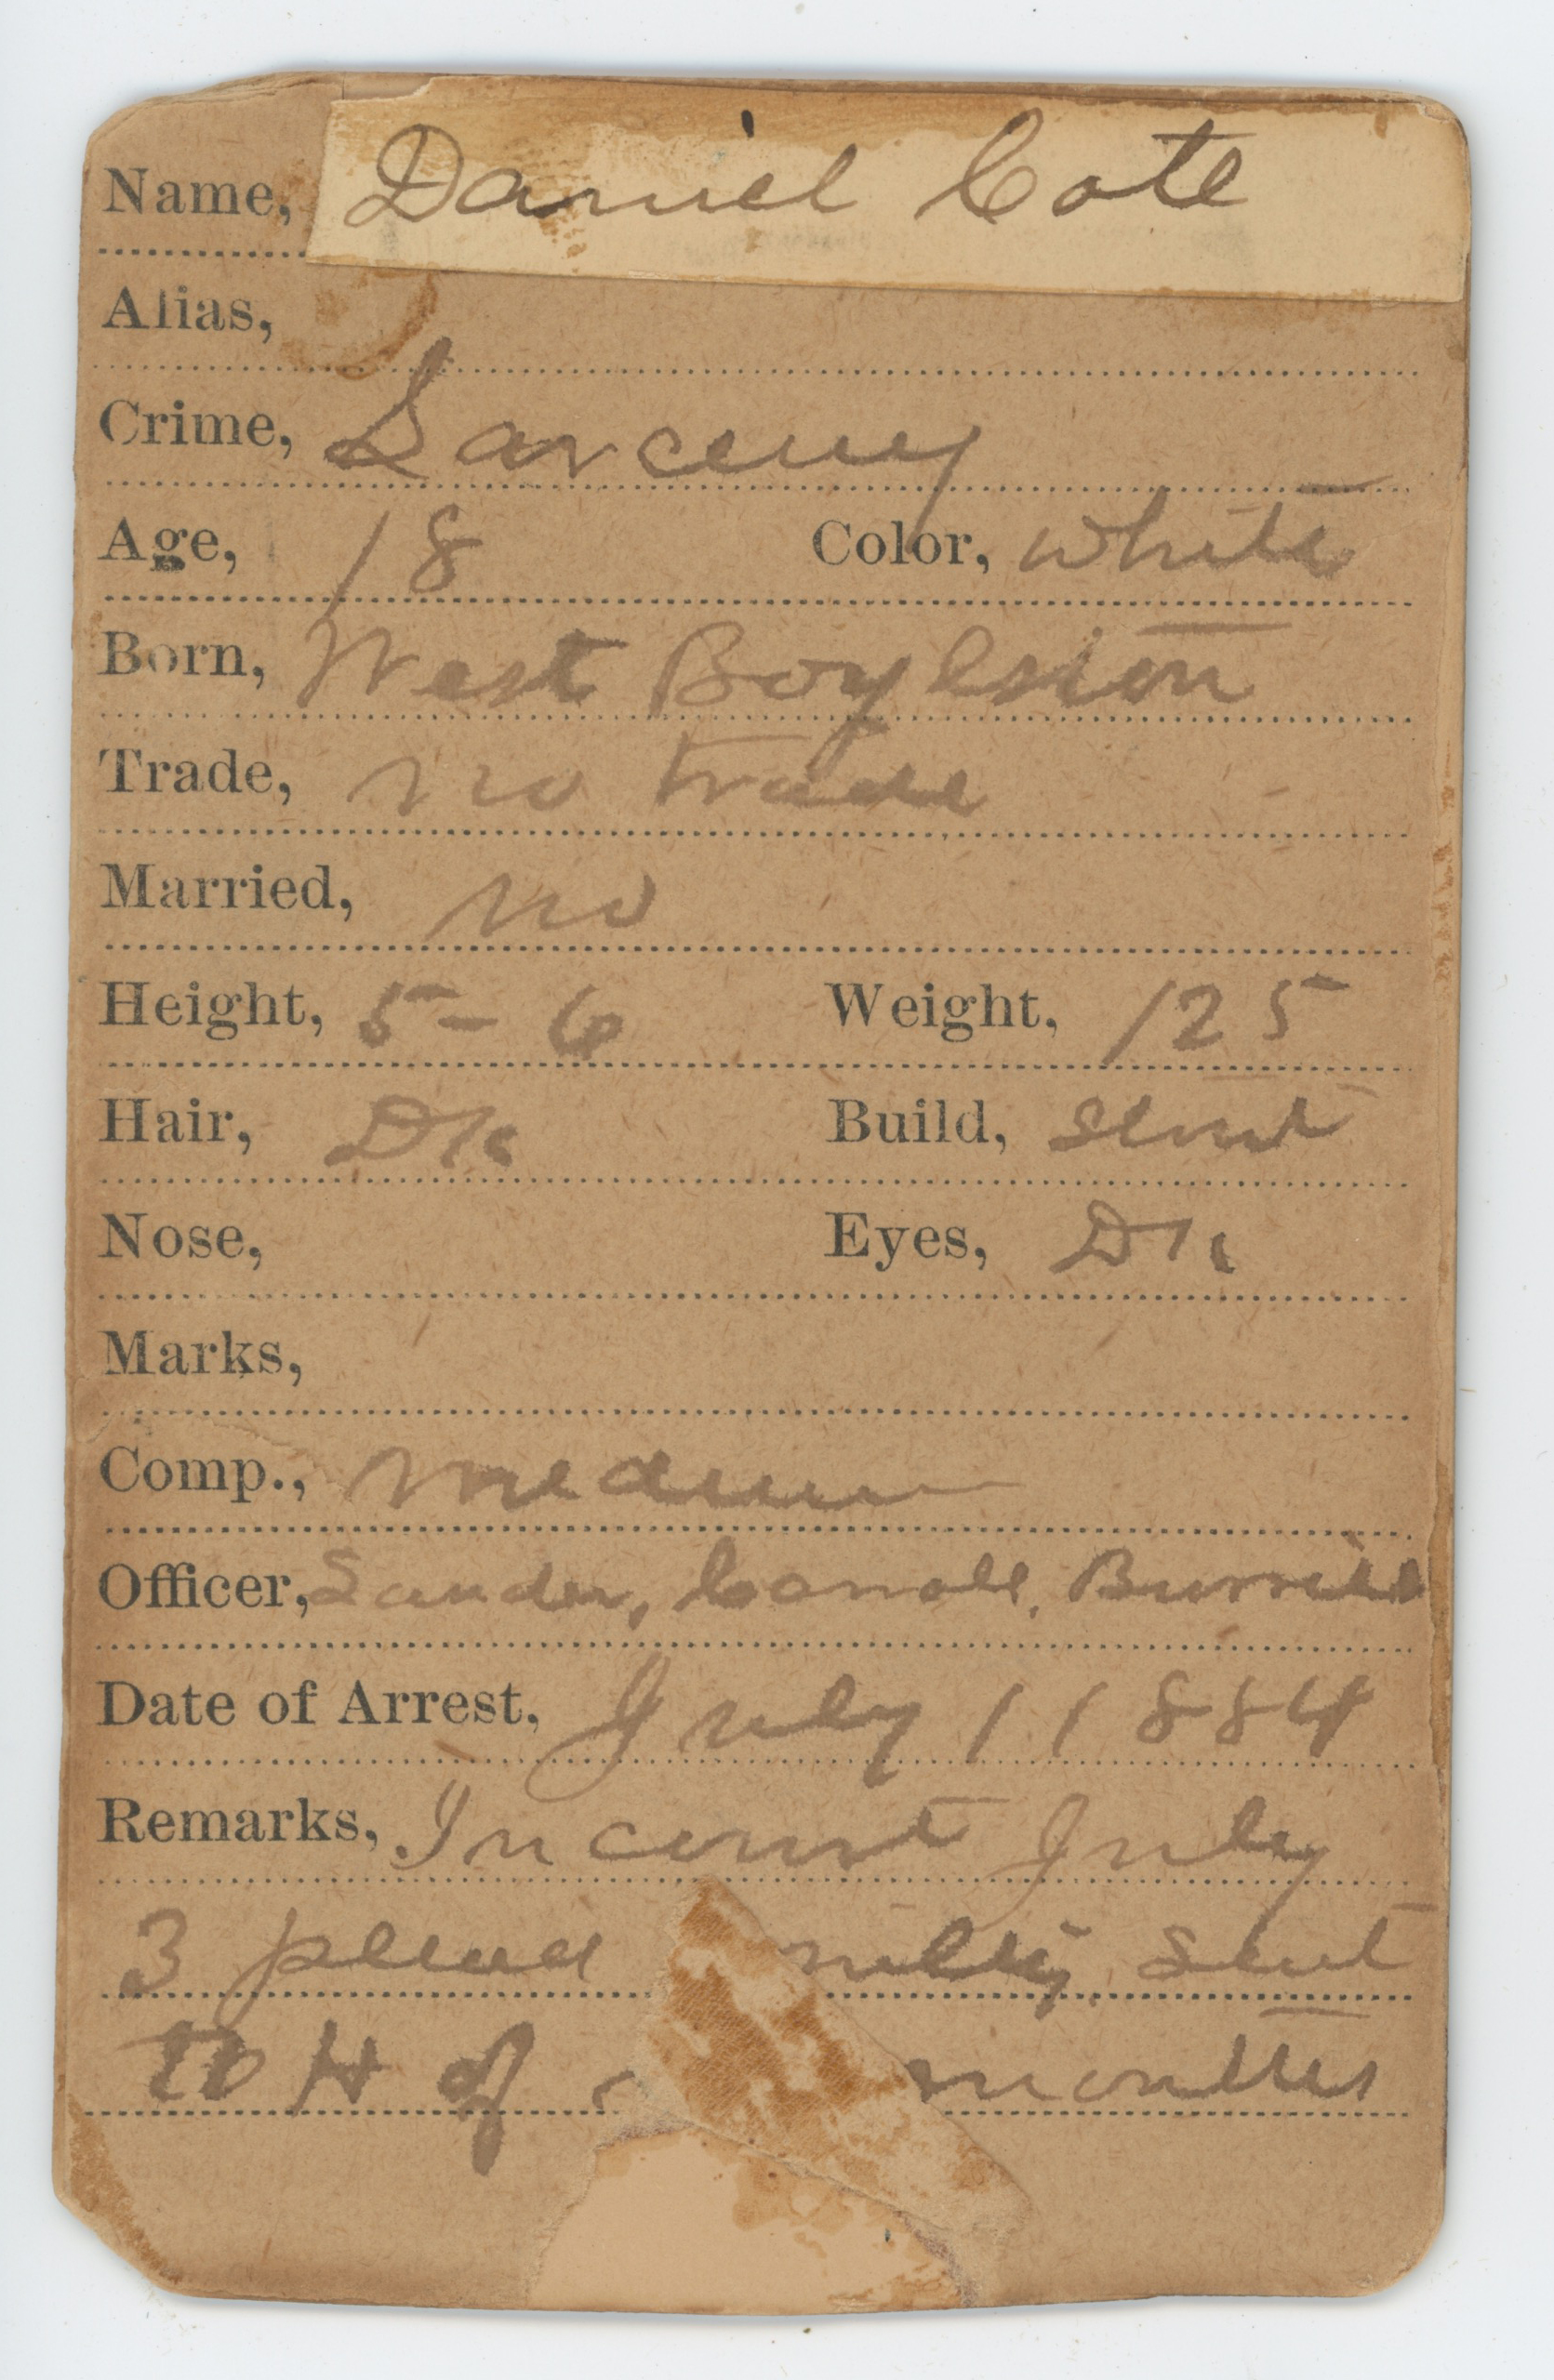 Name, Daniel Cote
Alias,
Crime, Larceny
Age, 18 Color, White
Born, West Boylston
Trade, no trade
Married, no
Height, 5-6 Weight, 125
Hair, Dk Build, Stout
Nose, Eyes, Dk
Marks,
Comp., Medium
Officer, Burrill
Date of Arrest, July 1 1884
Remarks, In court July
3 plead Sent
to H of months